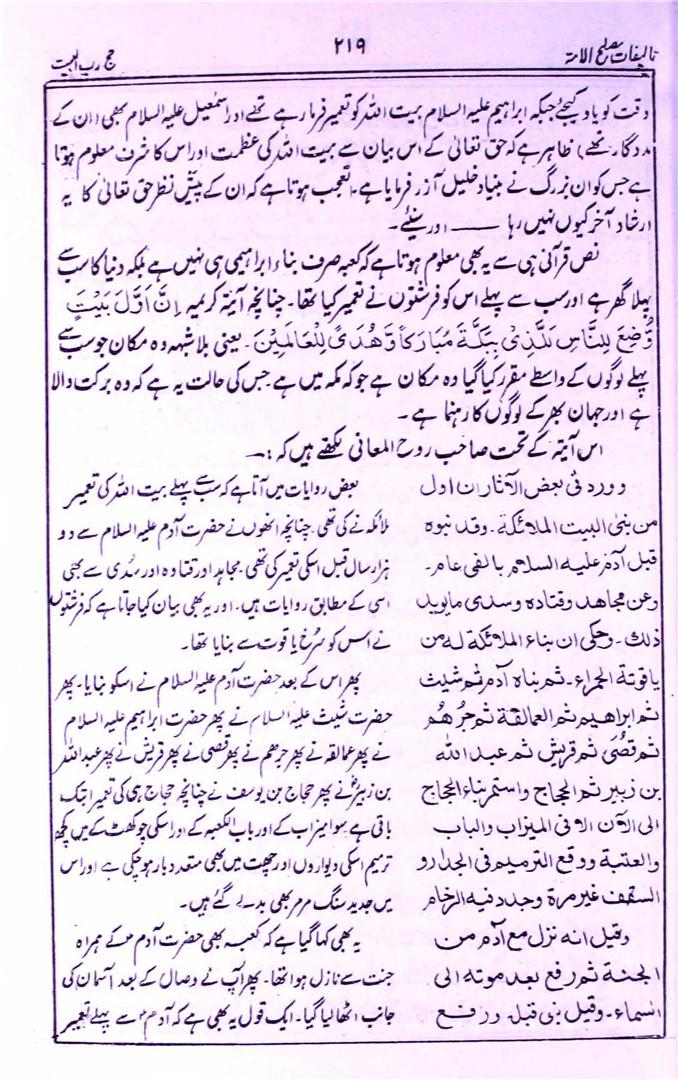 تالیفات مصلح الامۃ
۲۱۹
حج رب البیت
وقت کو یاد کیجئے جبکہ ابراہیم علیہ السلام بیت اللہ کو تعمیر فرما رہے تھے اور اسمٰعیل علیہ السلام بھی (ان کے
مددگار تھے) ظاہر ہے کہ حق تعالیٰ کے اس بیان سے بیت اللہ کی عظمت اور اس کا شرف معلوم ہوتا
ہے جس کو ان بزرگ نے بنیاد خلیل آزر فرمایا ہے۔ تعجب ہوتا ہے کہ ان کے پیش نظر حق تعالیٰ کا یہ
ارشاد آخر کیوں نہیں رہا ـــــ اور سنیئے۔
نص قرآنی ہی سے یہ بھی معلوم ہوتا ہے کہ کعبہ صرف بناء ابراہیمی ہی نہیں ہے بلکہ دنیا کا سب سے
پہلا گھر ہے اور سب سے پہلے اس کو فرشتوں نے تعمیر کیا تھا۔ چنانچہ آیۃ کریمہ اِنَّ اَوَّلَ بَیْتٍ
وُّضِعَ لِلنَّاسِ لَلَّذِیْ بِبَکَّةَ مُبَارَکاً وَّهُدًی لِّلْعَالَمِیْنَ۔ یعنی بلا شبہہ وہ مکان جو سب سے
پہلے لوگوں کے واسطے مقرر کیا گیا وہ مکان ہے جو کہ مکہ میں ہے جس کی حالت یہ ہے کہ وہ برکت والا
ہے اور جہان بھر کے لوگوں کا رہنما ہے۔
اس آیۃ کے تحت صاحب روح المعانی لکھتے ہیں کہ :۔
وورد فی بعض الآثار ان اول
من بنی البیت الملائکة۔ وقد بنوه
قبل آدم علیه السلام بالفی عام۔
وعن مجاهد وقتاده وسدی مایوید
ذلك۔ وحکی ان بناء الملائکة له من
یاقوتة الحمراء۔ ثم بناه آدم ثم شیث
ثم ابراهیم ثم العمالقة ثم جُرهُم
ثم قُصَی ثم قریش ثم عبد الله
بن زبیر ثم الحجاج واستمر بناء الحجاج
الی الآن الا فی المیزاب والباب
والعتبة ووقع الترمیم فی الجدار و
السقف غیر مرة وجدد فیه الرخام
وقیل انه نزل مع آدم من
الجنة ثم رفع بعد موته الی
السماء۔ وقیل بنی قبل ورفع
بعض روایات میں آتا ہے کہ سب سے پہلے بیت اللہ کی تعمیر
ملائکہ نے کی تھی۔ چنانچہ انھوں نے حضرت آدم علیہ السلام سے دو
ہزار سال قبل اسکی تعمیر کی تھی۔ مجاہد اور قتادہ اور سُدی سے بھی
اسی کے مطابق روایات ہیں۔ اور یہ بھی بیان کیا جاتا ہے کہ فرشتوں
نے اس کو سُرخ یاقوت سے بنایا تھا۔
پھر اس کے بعد حضرت آدم علیہ السلام نے اسکو بنایا۔ پھر
حضرت شیث علیہ السلام نے پھر حضرت ابراہیم علیہ السلام
نے پھر عمالقہ نے پھر جرھم نے پھر قصی نے پھر قریش نے پھر عبد اللہ
بن زبیرؓ نے پھر حجاج بن یوسف نے چنانچہ حجاج ہی کی تعمیر ابتک
باقی ہے سوا میزاب کے اور باب الکعبہ کے اور اسکی چوکھٹ کے میں کچھ
ترمیم اسکی دیواروں اور چھت میں بھی متعدد بار ہوچکی ہے اور اس
میں جدید سنگ مرمر بھی بدلے گئے ہیں۔
یہ بھی کہا گیا ہے کہ کعبہ بھی حضرت آدمؑ کے ہمراہ
جنت سے نازل ہوا تھا۔ پھر آپ کے وصال کے بعد آسمان کی
جانب اٹھا لیا گیا۔ ایک قول یہ بھی ہے کہ آدمؑ سے پہلے تعمیر